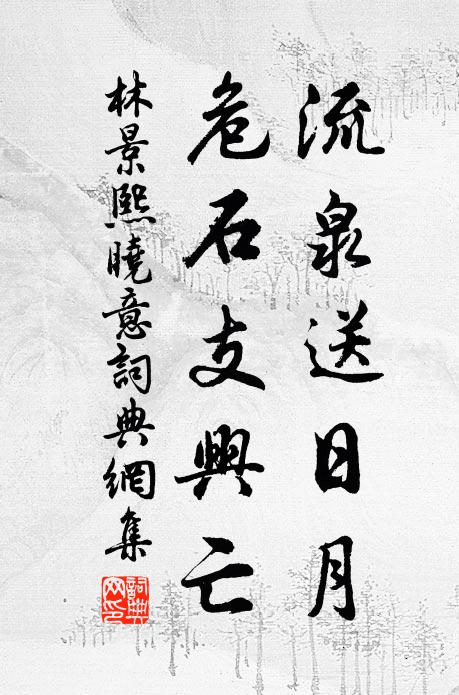 流泉送日月
危石支興亡
林景熙曉意詞典網集
詞典网印